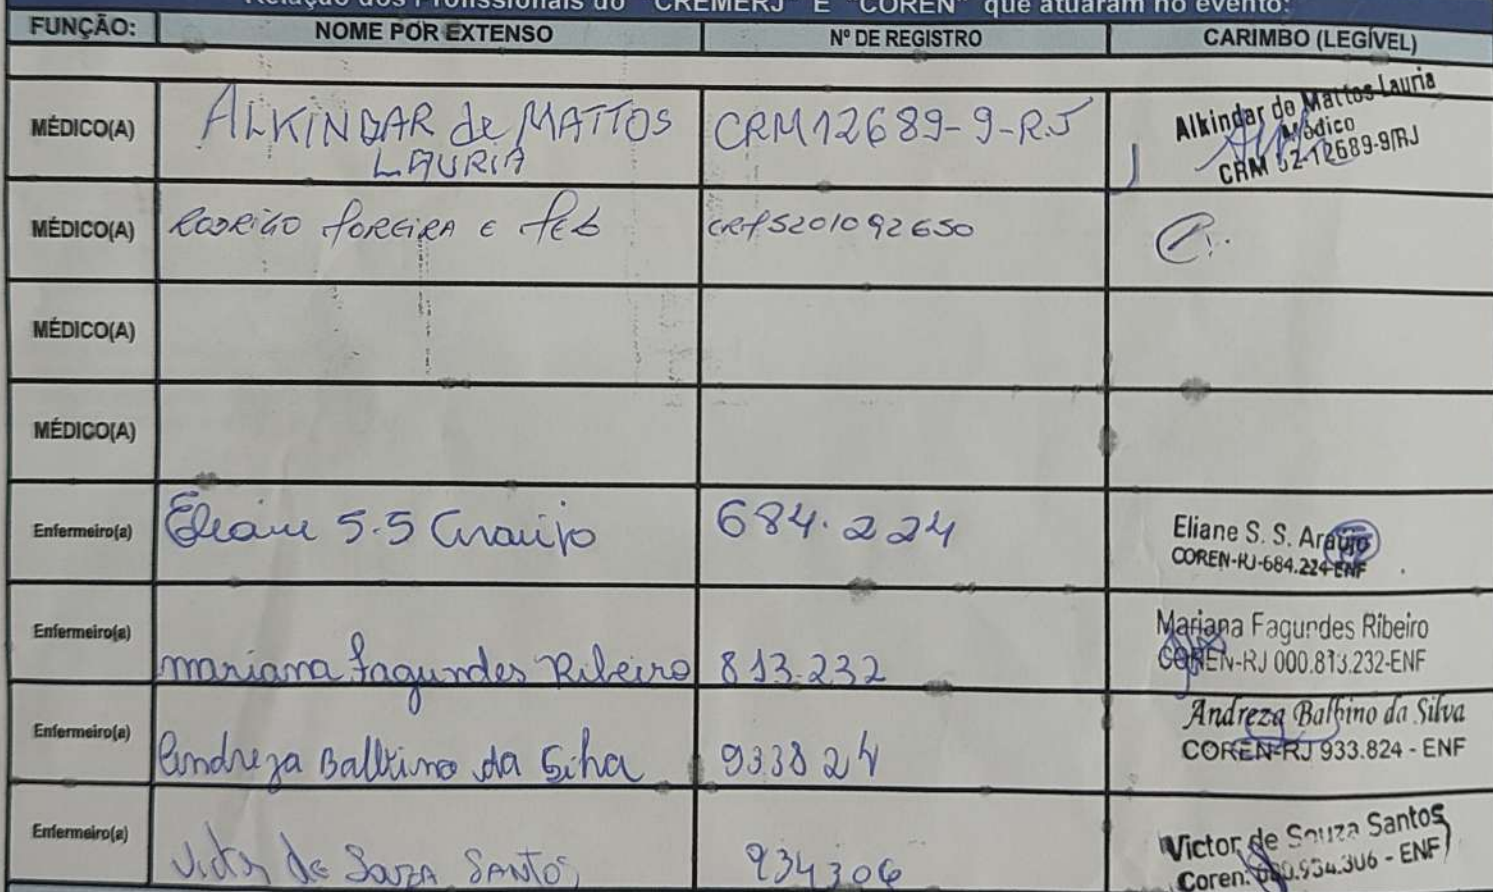 Relação dos Profissionais do "CREMERJ" E "COREN" que atuaram no evento:
FUNÇÃO: NOME POR EXTENSO Nº DE REGISTRO CARIMBO (LEGÍVEL)
MÉDICO(A) ALKINDAR de MATTOS LAURIA CRM12689-9-RJ
Alkindar de Mattos Lauria
Médico
CRM 52-12689-9/RJ
MÉDICO(A) RODRIGO E 5201092650
MÉDICO(A)
MÉDICO(A)
Enfermeiro(a) Eliane S.S Araújo 684.224
Eliane S. S. Araújo
COREN-RJ-684.224-ENF
Enfermeiro(a) mariana Fagundes Ribeiro 813.232
Mariana Fagundes Ribeiro
COREN-RJ 000.813.232-ENF
Enfermeiro(a) Andreza Balbino da Silva 933824
Andreza Balbino da Silva
COREN-RJ 933.824 - ENF
Enfermeiro(a) Victor de Souza SANTOS 934306
Victor de Souza Santos
Coren: 000.934.306 - ENF